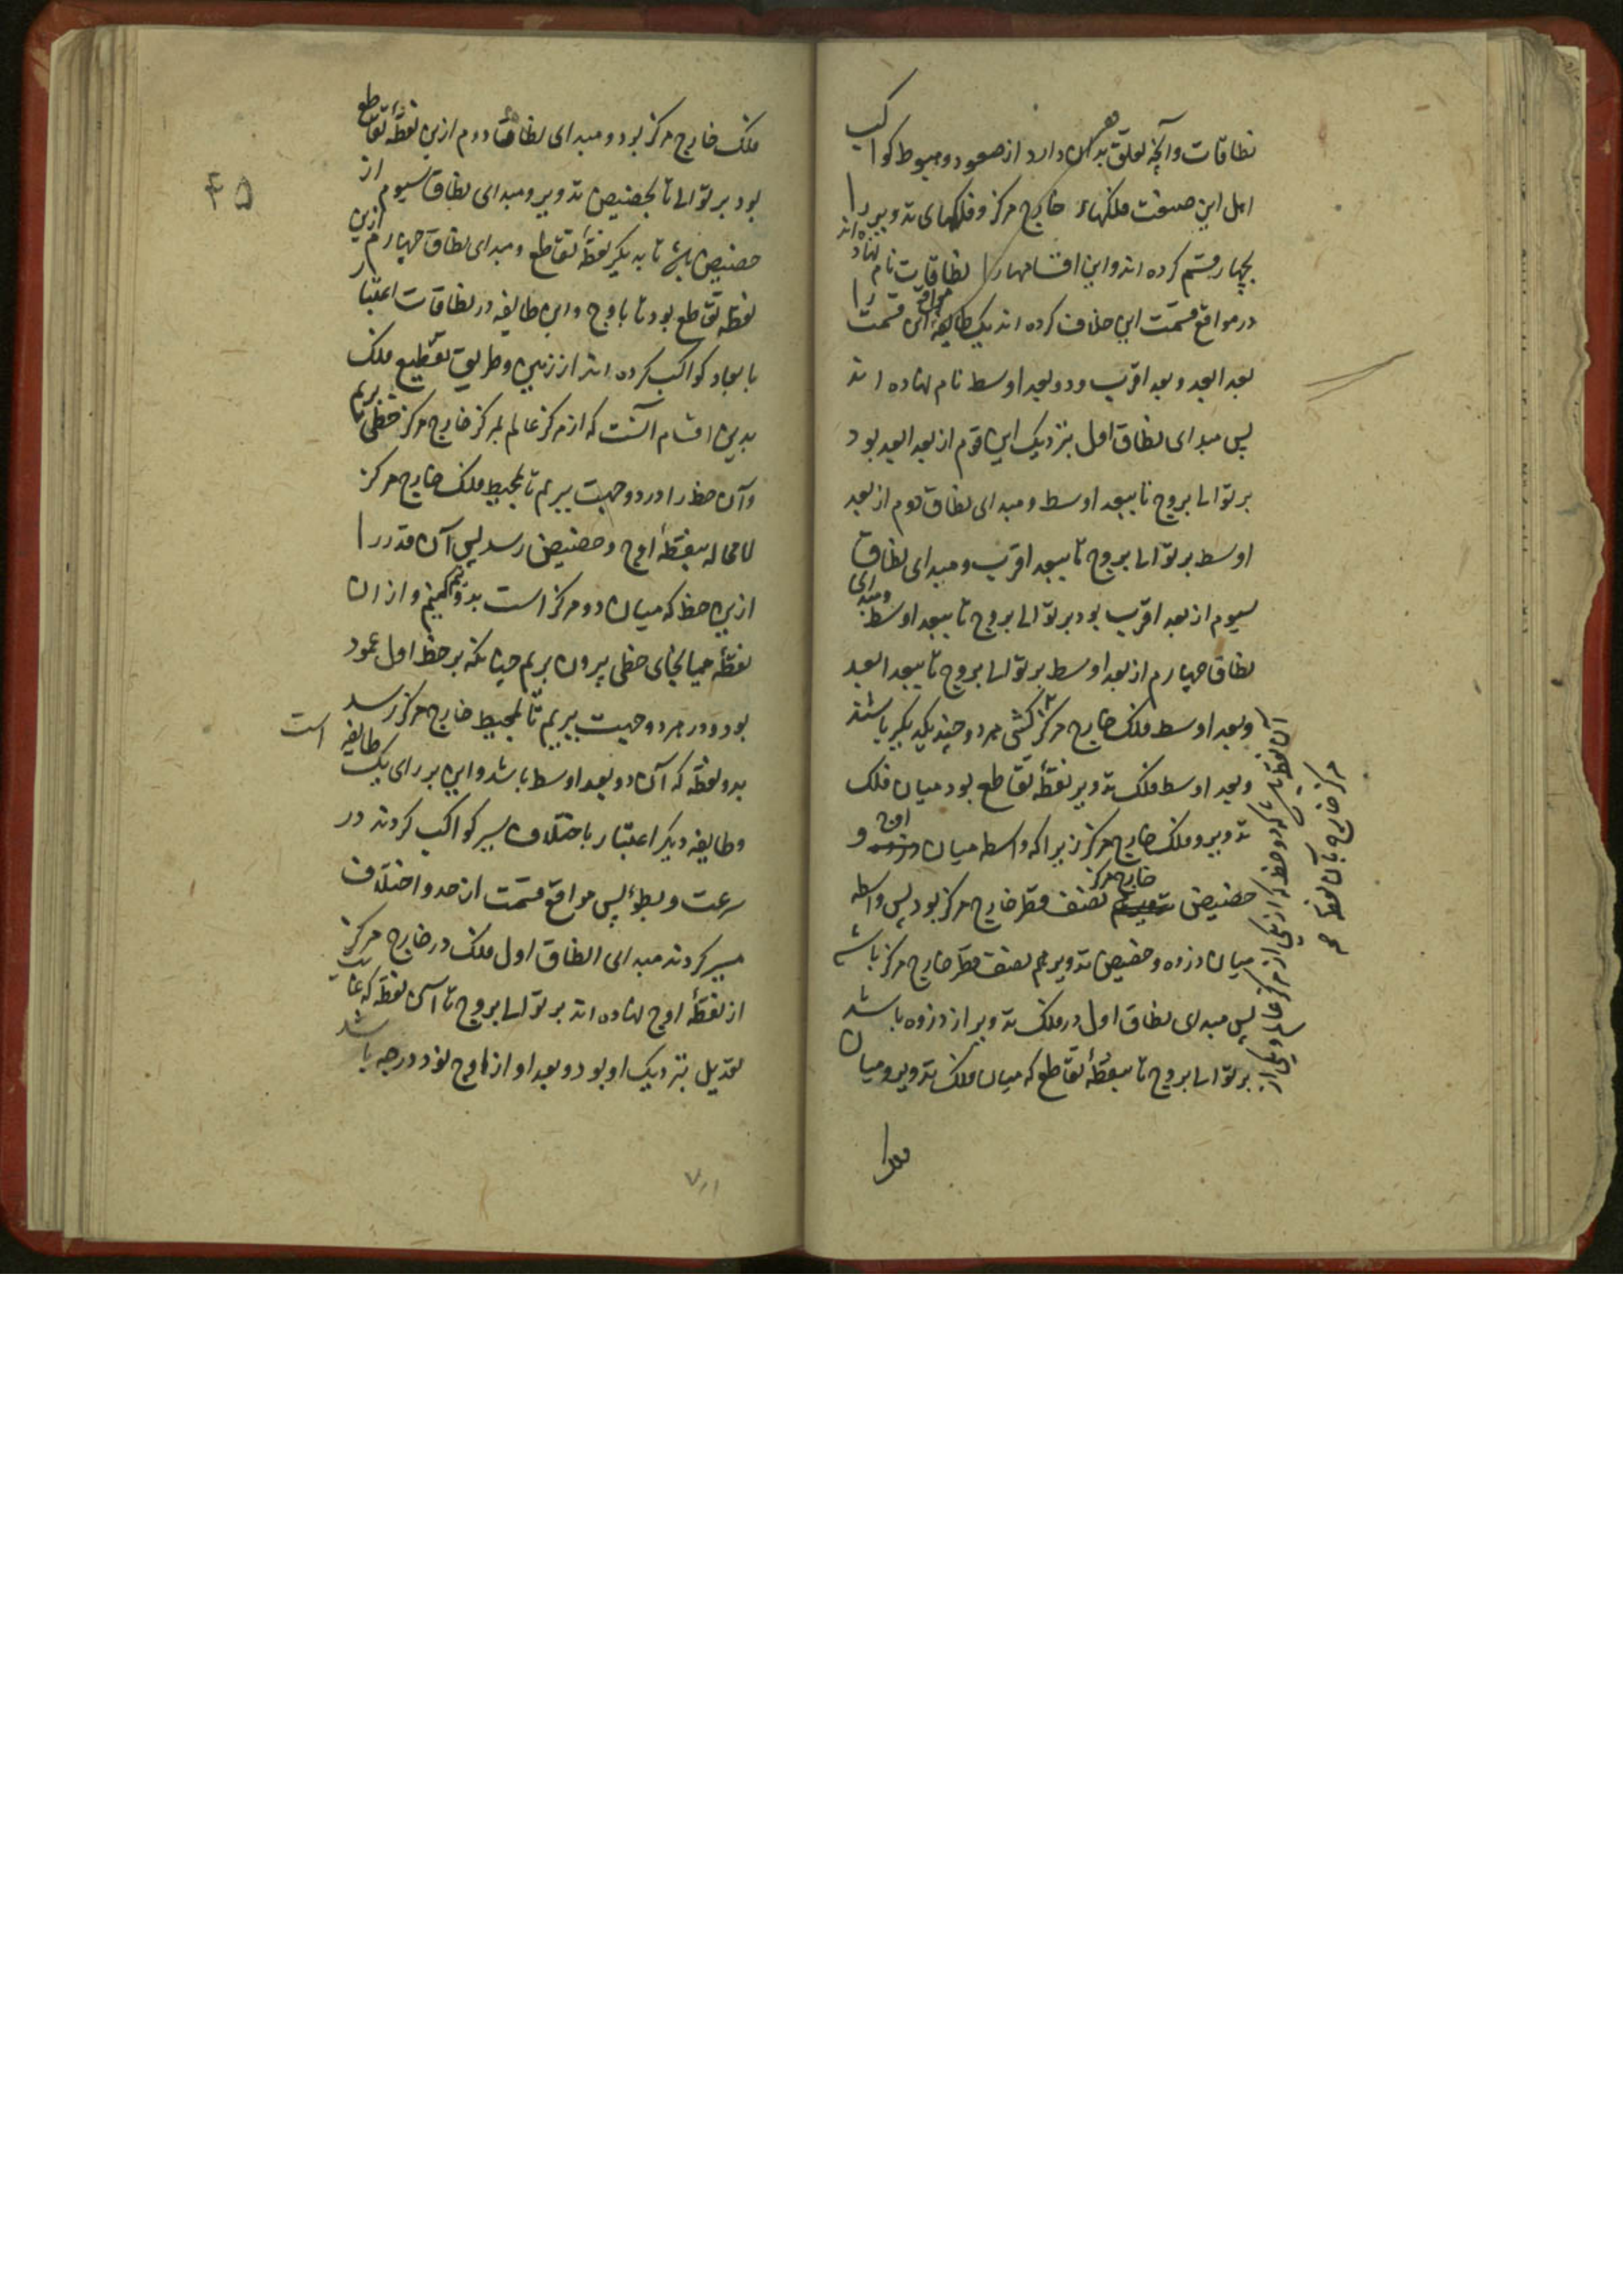 نطاقات وآنچه تعلق بدان دارد از صعود و هبوط کواکب
اهل این صنعت فلکهاء خارج مرکز و فلکهای تدویر را
بچهار قسم کرده اند و این اقسامها را نطاقات نام نهاده اند
در مواقع قسمت این خلاف کرده اند یک طایفه مواقع این قسمت را
بعد ابعد و بعد اقرب و دو بعد اوسط نام نهاده اند
پس مبدای نطاق اول بنزدیک این قوم از بعد ابعد بود
بر توالی بروج تا ببعد اوسط و مبدای نطاق دوم از بعد
اوسط بر توالی بروج تا ببعد اقرب و مبدای نطاق
سیوم از بعد اقرب بود بر توالی بروج تا ببعد اوسط و مبدای
نطاق چهارم از بعد اوسط بر توالی بروج تا ببعد ابعد
وبعد اوسط فلک خارج مرکز هر دو چند یکدیگر باشند
وبعد اوسط فلک تدویر نقطهٔ تقاطع بود میان فلک
تدویر و فلک خارج مرکز زیرا که واسطه میان اوج و
حضیض خارج مرکز نصف قطر خارج مرکز بود پس واسطه
میان ذروه و حضیض تدویر هم نصف قطر خارج مرکز باشد
پس مبدای نطاق اول در فلک تدویر از ذروه باشد
بر توالی بروج تا بنقطهٔ تقاطع که میان فلک تدویر و میان
فلک
آن نقطه باشد که دو خط که از یکی از مرکز عالم و یکی از
مرکز خارج بآن نقطه
۴۵
فلک خارج مرکز بود و مبدای نطاق دوم ازین نقطهٔ تقاطع
بود بر توالی تا بحضیض تدویر و مبدای نطاق سیوم از
حضیض باشد تا به دیگر نقطهٔ تقاطع و مبدای نطاق چهارم ازین
نقطه تقاطع بود تا باوج و این طایفه در نطاقات اعتبار
بابعاد کواکب کرده اند از زمین و طریق تقطیع فلک
بدین اقسام آنست که از مرکز عالم بمرکز خارج مرکز خطی بریم
و آن خط را در دو جهت ببریم تا بمحیط فلک خارج مرکز
لامحاله بنقطهٔ اوج و حضیض رسد پس آن قدر را
ازین خط که میان دو مرکز است بدو نیم کنیم و از ان
نقطهٔ میانجای خطی بیرون بریم چنانکه بر خط اول عمود
بود و در هر دو جهت ببریم تا بمحیط خارج مرکز رسد
بدو نقطه که آن دو بعد اوسط باشد و این بر رای یک طایفه است
و طایفه دیگر اعتبار باختلاف سیر کواکب کردند در
سرعت و بطؤ پس مواقع قسمت از حد و اختلاف
سیر کردند مبدای النطاق اول فلک در خارج مرکز
از نقطهٔ اوج نهاده اند بر توالی بروج تا آن نقطه که غایت
تعدیل بنزدیک او بود و بعد او از اوج نود درجه باشد